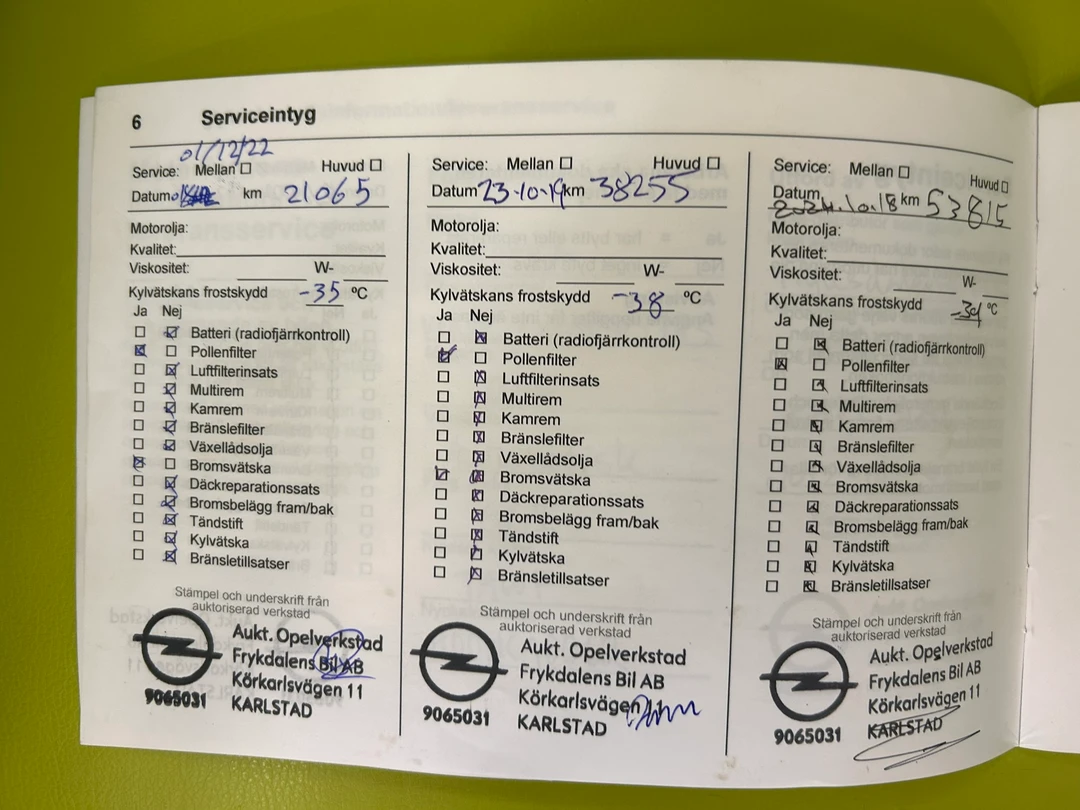 6 Serviceintyg
01/12/22
Service: Mellan ☐ Huvud ☐
Datum km 21065
Motorolja:
Kvalitet:
Viskositet: W-
Kylvätskans frostskydd -35 ºC
Ja Nej
☐ ☑ Batteri (radiofjärrkontroll)
☒ ☐ Pollenfilter
☐ ☒ Luftfilterinsats
☐ ☒ Multirem
☐ ☒ Kamrem
☐ ☒ Bränslefilter
☐ ☒ Växellådsolja
☒ ☐ Bromsvätska
☐ ☒ Däckreparationssats
☐ ☒ Bromsbelägg fram/bak
☐ ☒ Tändstift
☐ ☒ Kylvätska
☐ ☒ Bränsletillsatser
Stämpel och underskrift från
auktoriserad verkstad
Aukt. Opelverkstad
Frykdalens Bil AB
Körkarlsvägen 11
9065031 KARLSTAD
Service: Mellan ☐ Huvud ☐
Datum 23-10-19 km 38255
Motorolja:
Kvalitet:
Viskositet: W-
Kylvätskans frostskydd -38 ºC
Ja Nej
☐ ☒ Batteri (radiofjärrkontroll)
☑ ☐ Pollenfilter
☐ ☒ Luftfilterinsats
☐ ☒ Multirem
☐ ☒ Kamrem
☐ ☒ Bränslefilter
☐ ☒ Växellådsolja
☑ ☒ Bromsvätska
☐ ☒ Däckreparationssats
☐ ☒ Bromsbelägg fram/bak
☐ ☒ Tändstift
☐ ☒ Kylvätska
☐ ☒ Bränsletillsatser
Stämpel och underskrift från
auktoriserad verkstad
Aukt. Opelverkstad
Frykdalens Bil AB
Körkarlsvägen 11
9065031 KARLSTAD
Service: Mellan ☐ Huvud ☐
Datum 2024.10.18 km 53815
Motorolja:
Kvalitet:
Viskositet: W-
Kylvätskans frostskydd ºC
Ja Nej
☐ ☒ Batteri (radiofjärrkontroll)
☒ ☐ Pollenfilter
☐ ☒ Luftfilterinsats
☐ ☒ Multirem
☐ ☒ Kamrem
☐ ☒ Bränslefilter
☐ ☒ Växellådsolja
☐ ☒ Bromsvätska
☐ ☒ Däckreparationssats
☐ ☒ Bromsbelägg fram/bak
☐ ☒ Tändstift
☐ ☒ Kylvätska
☐ ☒ Bränsletillsatser
Stämpel och underskrift från
auktoriserad verkstad
Aukt. Opelverkstad
Frykdalens Bil AB
Körkarlsvägen 11
9065031 KARLSTAD